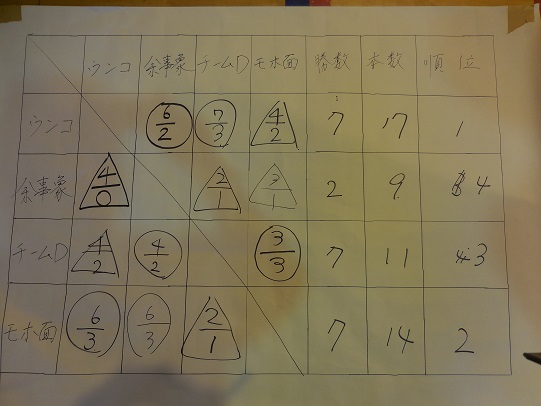 ウンコ 余事象 チームD モホ面 勝数 本数 順位
ウンコ 6/2 7/3 4/2 7 17 1
余事象 4/0 2/1 3/1 2 9 4
チームD 4/2 4/2 3/3 7 11 3
モホ面 6/3 6/3 2/1 7 14 2